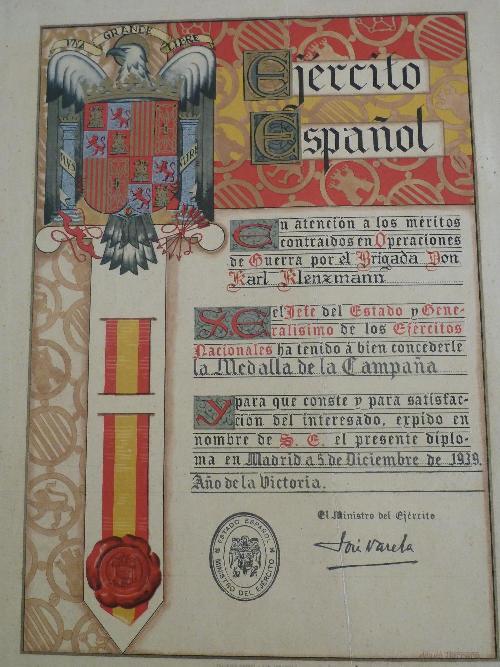 UNA GRANDE LIBRE
Ejército
Español
PLUS ULTRA
En atención a los méritos
contraidos en Operaciones
de Guerra por el Brigada Don
Karl Klenzmann
S.E. el Jefe del Estado y Gene-
ralísimo de los Ejércitos
Nacionales ha tenido á bien concederle
la Medalla de la Campaña
Y para que conste y para satisfac-
ción del interesado, expido en
nombre de S. E. el presente diplo-
ma en Madrid a 5 de Diciembre de 1939.
Año de la Victoria.
El Ministro del Ejército
José Varela
ESTADO ESPAÑOL
MINISTRO DEL EJERCITO